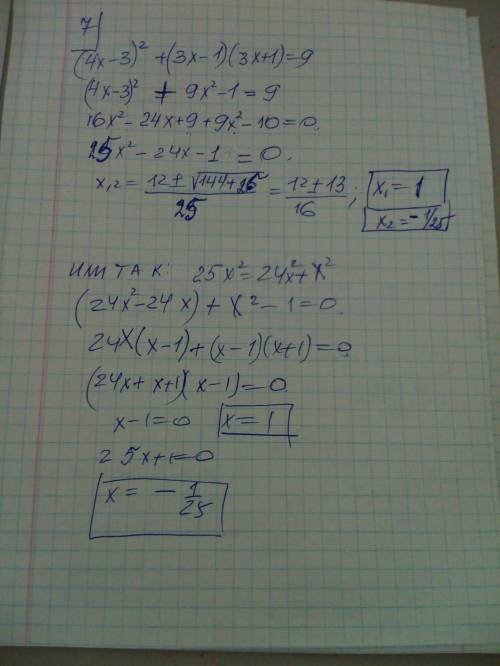 7)
(4x-3)² + (3x-1)(3x+1)=9
(4x-3)² + 9x²-1=9
16x²-24x+9+9x²-10=0.
25x²-24x-1=0.
x₁,₂ = (12±√(144+25))/25 = (12±13)/16; x₁=1
x₂=-1/25
ИЛИ ТАК: 25x²=24x²+x²
(24x²-24x)+x²-1=0.
24x(x-1)+(x-1)(x+1)=0
(24x+x+1)(x-1)=0.
x-1=0 x=1
25x+1=0
x=-1/25